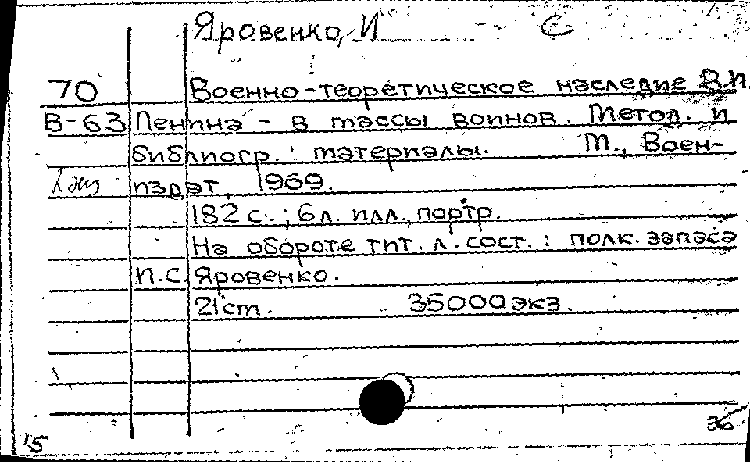 Яровенко, И С
70 Военно-теоретическое наследие В.И.
В-63 Ленина - в массы воинов. Метод. и
библиогр. материалы. М., Воен-
1 экз издат, 1969.
182 с.; 6 л. илл., портр.
На обороте тит. л. сост.: полк. запаса
И.С. Яровенко.
21 cm. 35000 экз.
15 36